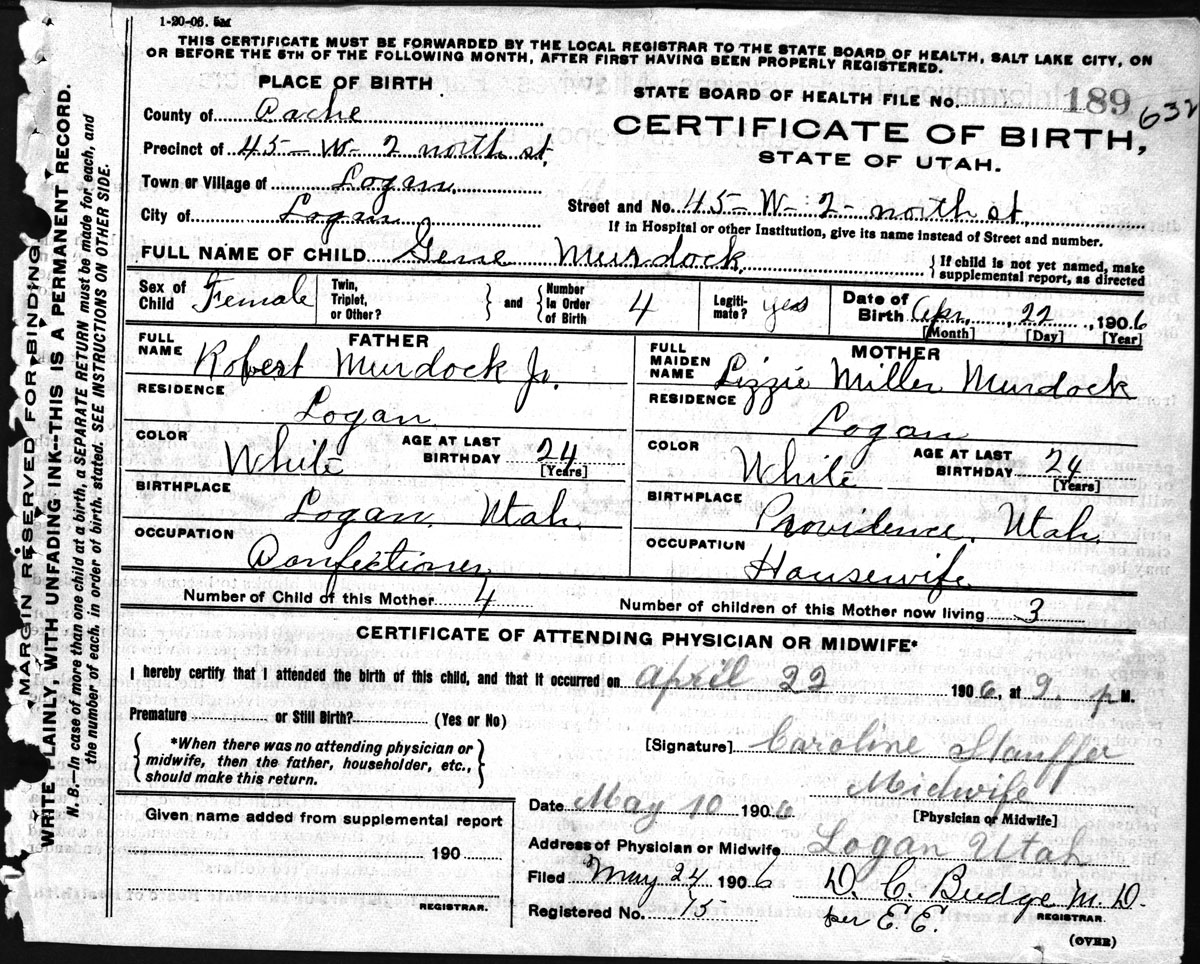 1-20-06. 5M
THIS CERTIFICATE MUST BE FORWARDED BY THE LOCAL REGISTRAR TO THE STATE BOARD OF HEALTH, SALT LAKE CITY, ON
OR BEFORE THE 5TH OF THE FOLLOWING MONTH, AFTER FIRST HAVING BEEN PROPERLY REGISTERED.
PLACE OF BIRTH
STATE BOARD OF HEALTH FILE No. 189 632
County of Cache
CERTIFICATE OF BIRTH,
STATE OF UTAH.
Precinct of 45 - W - 2 north st.
Town or Village of Logan.
City of Logan
Street and No. 45 - W - 2 - north st.
If in Hospital or other Institution, give its name instead of Street and number.
FULL NAME OF CHILD Gene Murdock. { If child is not yet named, make
supplemental report, as directed
Sex of Child Female Twin, Triplet, or Other? } and { Number In Order of Birth 4 Legiti-mate? yes Date of Birth Apr. 22, 1906
[Month] [Day] [Year]
FATHER
FULL NAME Robert Murdock Jr.
RESIDENCE
Logan
COLOR White AGE AT LAST BIRTHDAY 24
[Years]
BIRTHPLACE
Logan, Utah.
OCCUPATION
Confectioner
MOTHER
FULL MAIDEN NAME Lizzie Miller Murdock
RESIDENCE
Logan
COLOR White AGE AT LAST BIRTHDAY 24
[Years]
BIRTHPLACE
Providence, Utah.
OCCUPATION
Housewife
Number of Child of this Mother 4 Number of children of this Mother now living 3
CERTIFICATE OF ATTENDING PHYSICIAN OR MIDWIFE*
I hereby certify that I attended the birth of this child, and that it occurred on April 22 1906, at 9. p M.
Premature or Still Birth? (Yes or No)
{ *When there was no attending physician or
midwife, then the father, householder, etc.,
should make this return. }
[Signature] Caroline Stauffer
Midwife
Date May 10 1906 [Physician or Midwife]
Address of Physician or Midwife. Logan Utah
Filed May 24 1906 D. C. Budge M. D.
Registered No. 75 per E. E. REGISTRAR.
(OVER)
Given name added from supplemental report
190
REGISTRAR.
MARGIN RESERVED FOR BINDING.
WRITE PLAINLY, WITH UNFADING INK--THIS IS A PERMANENT RECORD.
N. B.--In case of more than one child at a birth, a SEPARATE RETURN must be made for each, and
the number of each, in order of birth, stated. SEE INSTRUCTIONS ON OTHER SIDE.